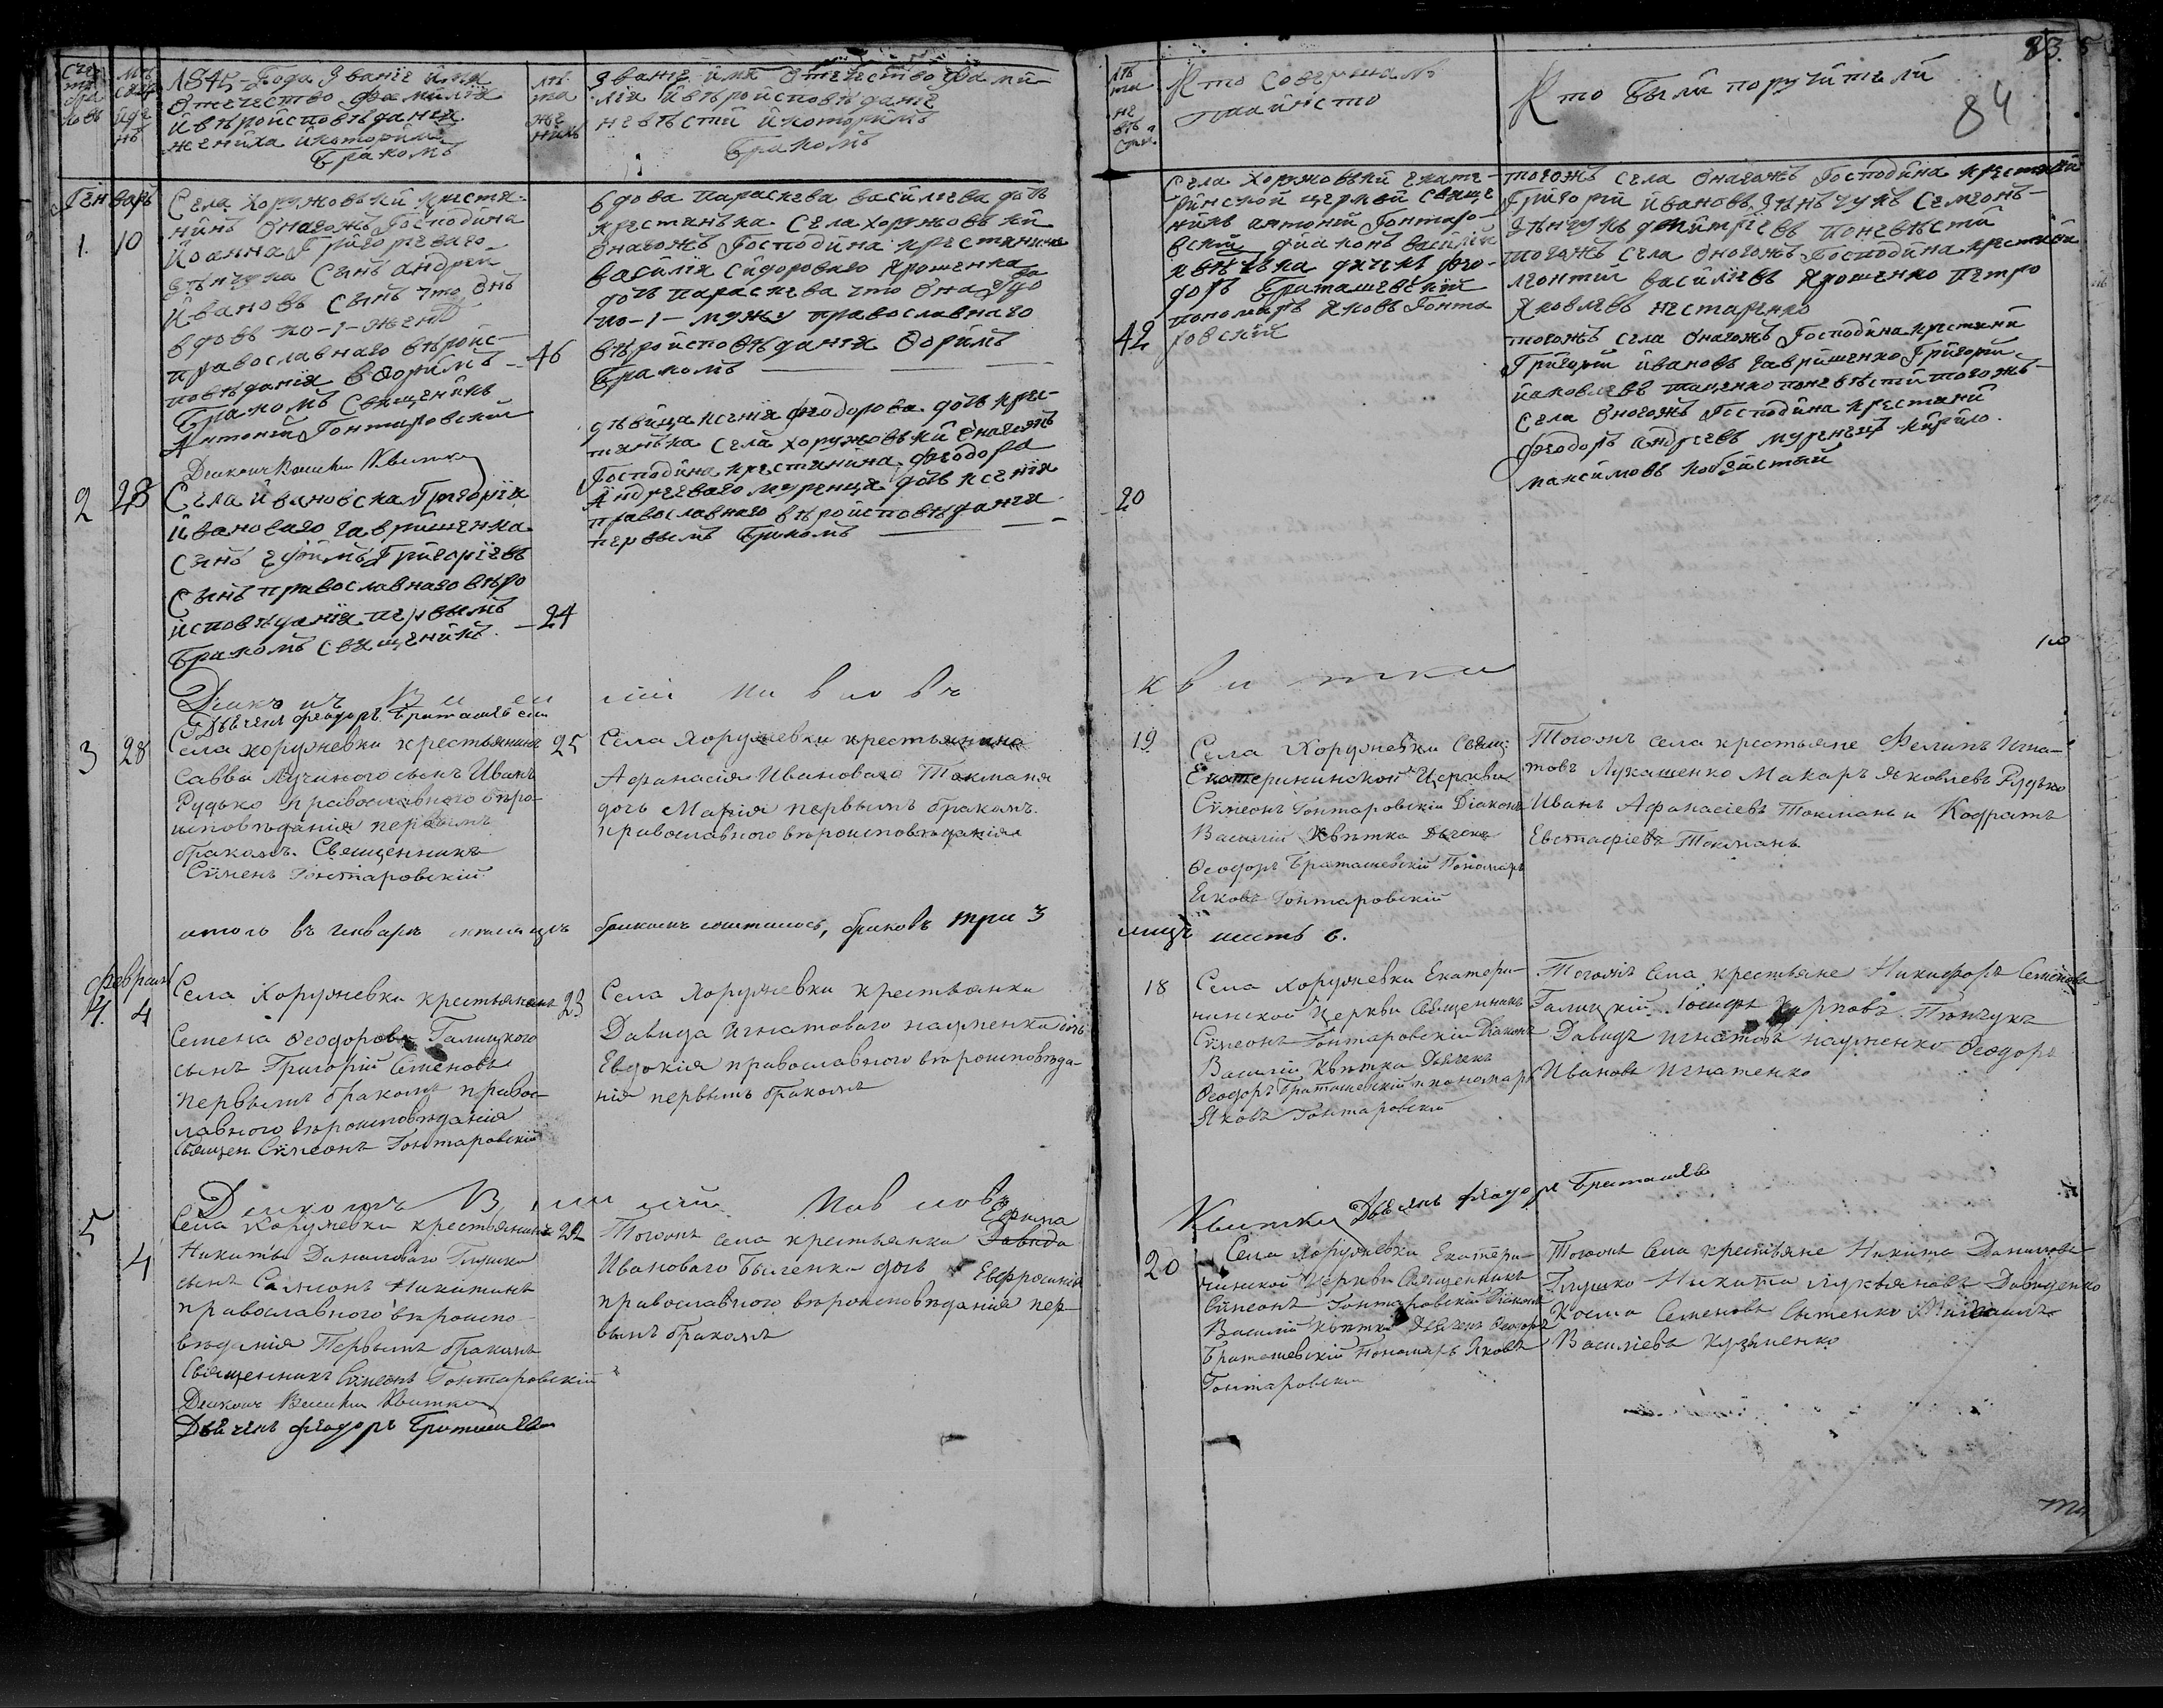 83.
84
Счетъ браковъ
Мѣсяцъ и день
184 Года Званіе имя
отечество фамилія
и вѣроисповѣданія
жениха и которимъ
бракомъ
лѣта жениха
Званіе имя отечество фами-
лія и вѣроисповѣданіе
невѣсти и которимъ
бракомъ
лѣта невѣсти
Кто совершалъ
таинство
Кто были поручители
Генварь
1. 10
Села Хоружовъки крестя-
нинъ онагожъ Господина
Иоанна Григорьеваго
сынъ андрей
Ивановъ сынъ что онъ
вдовъ по-1-женѣ
православнаго вѣроис-
повѣданія вторимъ
бракомъ Священикъ
Антоній Гонтаровскій
Диаконъ Василий Квитка
46
вдова параскева василиева дочь
крестянъка села хоружовъки
онагожъ Господина крестянина
василия Сидороваго Ярошенка
дочь параскева что она вдова
по-1-мужу православнаго
вѣроисповѣданія вторимъ
бракомъ
42
Села Хоружовъки екате-
ринской церкви Свяще
никъ антоній Гонтаро-
вский диаконъ василій
квѣтъка дячекъ фео-
доръ Браташевскій
пономаръ яковъ Гонта
ровский
тогожъ села онагожъ Господина крестяни
Григорій ивановъ Семеонъ
димитріевъ поневѣсти
тогожъ села оногожъ Господина крестяни
леонтій василіевъ Ярошенко петро
Яковлевъ нестаренко
2 28
Села ивановска Григорія
ивановаго гавришенка
сынъ ефимъ Григоріевъ
Сынъ православнаго вѣро
исповѣданія первымъ
бракомъ священикъ
24
дѣвица ксенія феодорова дочь крес-
тянъка села хоружовъки онагожъ
Господина крестянина феодора
андрееваго муренца дочь ксенія
православнаго вѣроисповѣданія
первымъ бракомъ
20
тогожъ села онагожъ Господина крестяни
Григорій ивановъ гавришенко Григорій
иаковлевъ таценко поневѣсти тогожъ
села оногожъ Господина крестяни
феодоръ андреевъ муренецъ кирило
максимовъ
Диаконъ Василий Павловъ Квитка
Дьячекъ феодоръ Браташевский
3 28
Села хоружевки крестьянинъ
Саввы Лучиного сынъ Иванъ
Рудько православного вѣро-
исповѣданія первымъ
бракомъ. Священникъ
Сѵмеонъ Гонтаровскій
25
Села Хоружевки крестьянина
Афанасія Иванового Токманя
дочь Марія первымъ бракомъ
православного вѣроисповѣданія
19
Села Хоружевки Свящ
Екатерининской Церкви
Сѵмеонъ Гонтаровскій Діаконъ
Василій Квѣтка Дьячекъ
Ѳеодоръ Браташевскій Пономаръ
Еяковъ Гонтаровскій
Тогожъ села крестьяне Филипъ Игна-
товъ Лукашенко Макаръ Яковлевъ Рудько
Иванъ Афанасіевъ Токмань и Кодратъ
Евстафіевъ Токмань
итого въ генварѣ мѣсяцѣ бракомъ сочталось, браковъ три 3
лицъ шесть 6.
Февраль
4. 4
Села Хоружевки крестьянинъ
Семена Ѳеодорова Галицкого
сынъ Григорій Семеновъ
первымъ бракомъ правос-
лавного вѣроисповѣданія
Священ Сѵмеонъ Гонтаровскій
23
Села Хоружевки крестьянки
Давида Игнатоваго науменка дочь
Евдокія православного вѣроисповѣда-
нія первымъ бракомъ
18
Села Хоружевки Екатери-
нинской Церкви Священникъ
Сѵмеонъ Гонтаровскій Діаконъ
Василій Квѣтка Дьячекъ
Ѳеодоръ Браташевскій и пономаръ
Яковъ Гонтаровскій
Тогожъ Села крестьяне Никифоръ Семеновъ
Галицкій Іосифъ Карповъ
Давидъ Игнатовъ науменко Ѳеодоръ
Ивановъ Игнатенко
Диаконъ Василий Павловъ
Квитка Дьячекъ феодоръ Браташев
5 4
Села Хоружевки крестьянинъ
Никиты Даниловаго Глушка
сынъ Самсонъ Никитинъ
православного вѣроиспо-
вѣданія Первымъ бракомъ
Священникъ Сѵмеонъ Гонтаровскій
Диаконъ Василий Квитка
Дьячекъ феодоръ Браташев
22
Ефима
Тогожъ села крестьянки Давида
Ивановаго Быченка дочь Евфросинія
православного вѣроисповѣданія пер-
вымъ бракомъ
20
Села Хоружевки Екатери-
нинской Церкви Священникъ
Сѵмеонъ Гонтаровскій Діаконъ
Василій Квѣтка Дьячекъ Ѳеодоръ
Браташевскій Пономаръ Яковъ
Гонтаровский
Тогожъ Села крестьяне Никита Даниловъ
Глушко Никита Лукьяновъ Давиденко
Косма Семеновъ Сытенко Михаилъ
Василіевъ Кузьменко